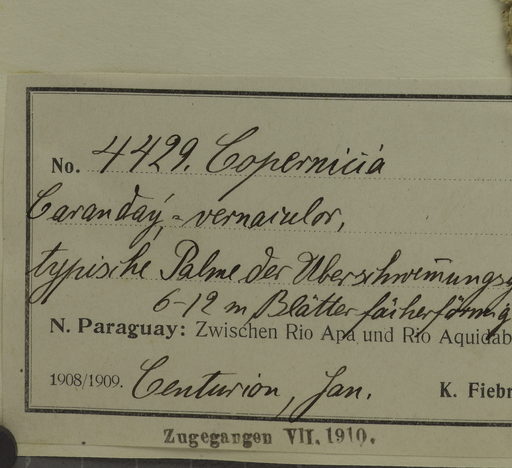 No. 4429. Copernicia
Caranday, - vernaculor,
typische Palme der Überschwem̅ungsg
6-12 m Blätter fächerförmig
N. Paraguay: Zwischen Rio Apa und Rio Aquidab
1908/1909. Centurion, Jan. K. Fiebr
Zugegangen VII. 1910.